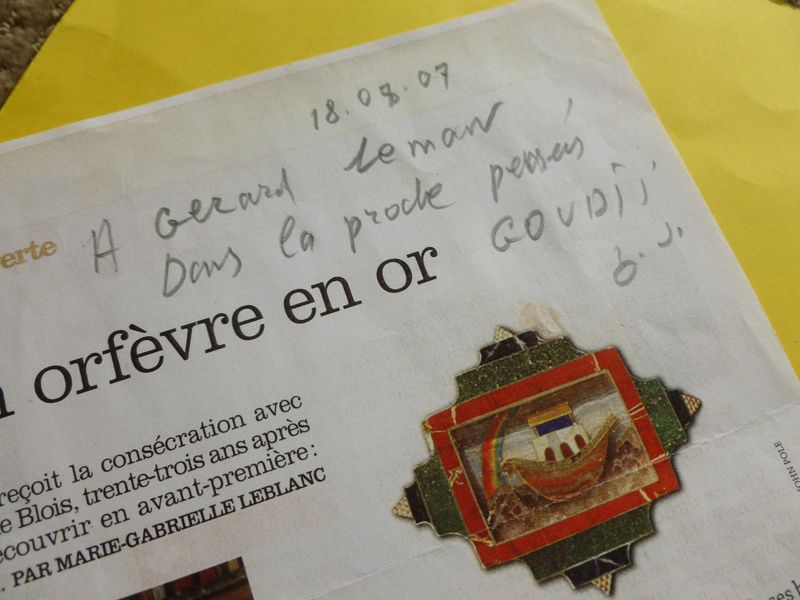 18.08.07
A Gerard Leman
Dans la proche pensés
GOUDJI
G. J.
erte
orfèvre en or
reçoit la consécration avec
e Blois, trente-trois ans après
écouvrir en avant-première :
. PAR MARIE-GABRIELLE LEBLANC
JOHN POLE